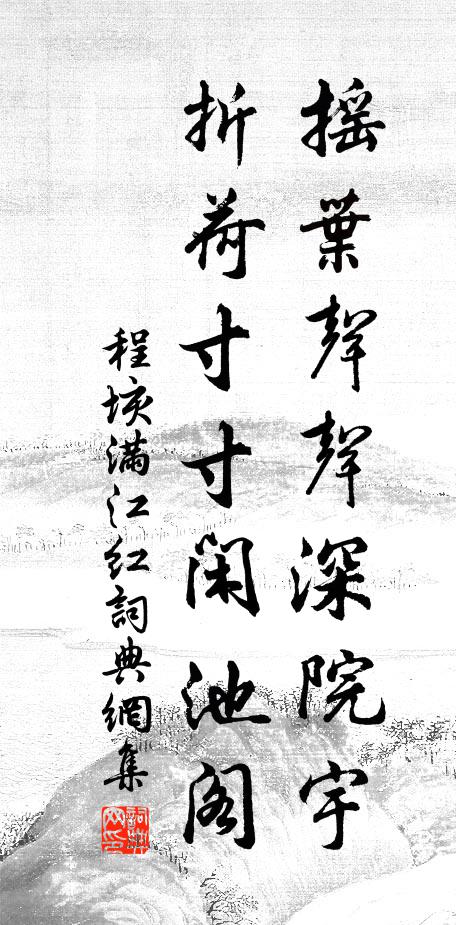 搖葉聲聲深院宇
折荷寸寸閑池閣
程垓滿江紅詞典網集